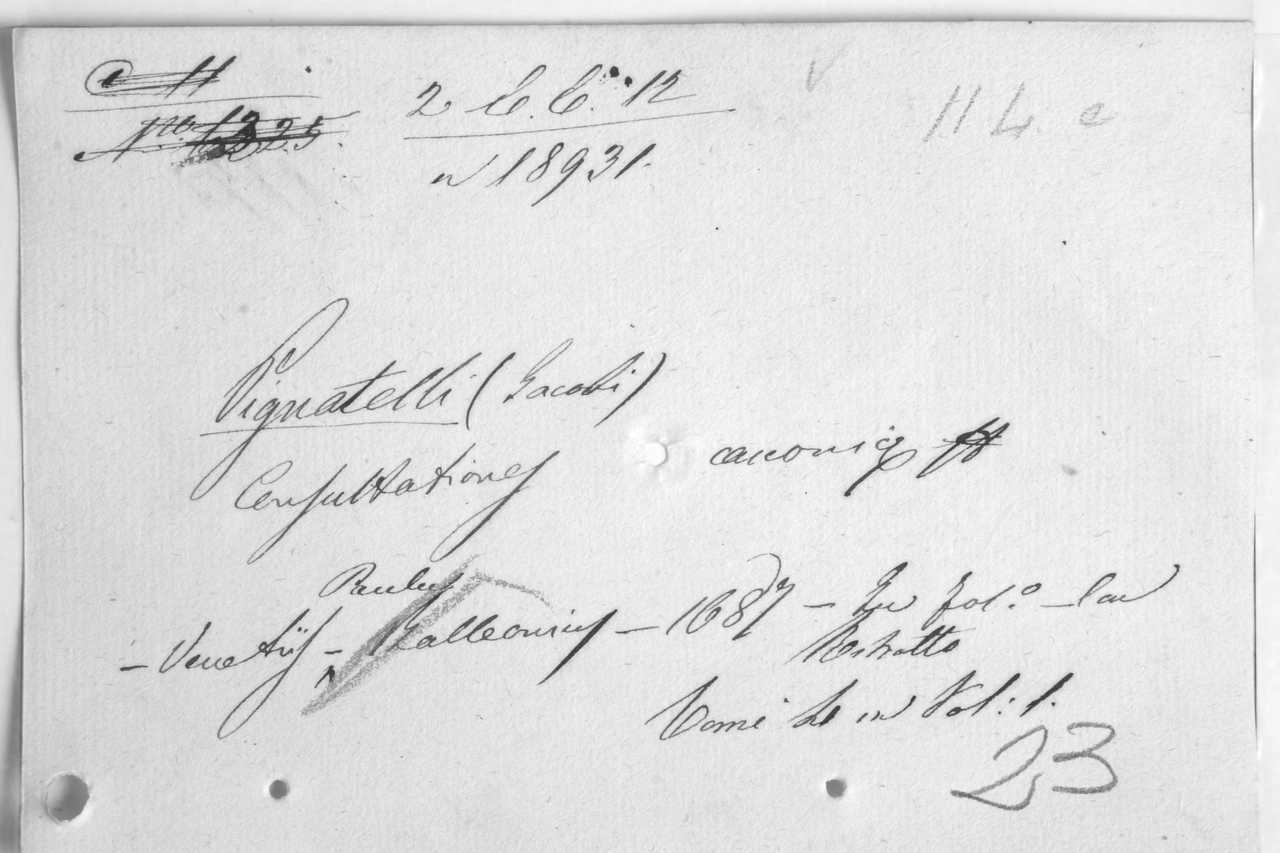 C H
N.ro 13225.
2 C. C. 12
n 18931.
H L. e
Pignatelli (Jacobi)
Consultationes canonicæ
Paulus
– Venetiis – Balleonius – 1687 – In fol.° – Con
Ritratto
Tomi in Vol: 1.
23